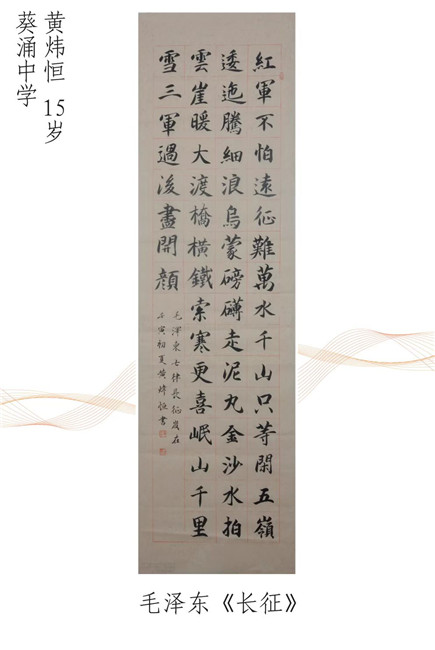 黄炜恒 15岁
葵涌中学
紅軍不怕遠征難萬水千山只等閑五嶺
逶迤騰細浪烏蒙磅礴走泥丸金沙水拍
雲崖暖大渡橋橫鐵索寒更喜岷山千里
雪三軍過後盡開顏
毛澤東七律長征歲在
壬寅初夏黄煒恒書
毛泽东《长征》